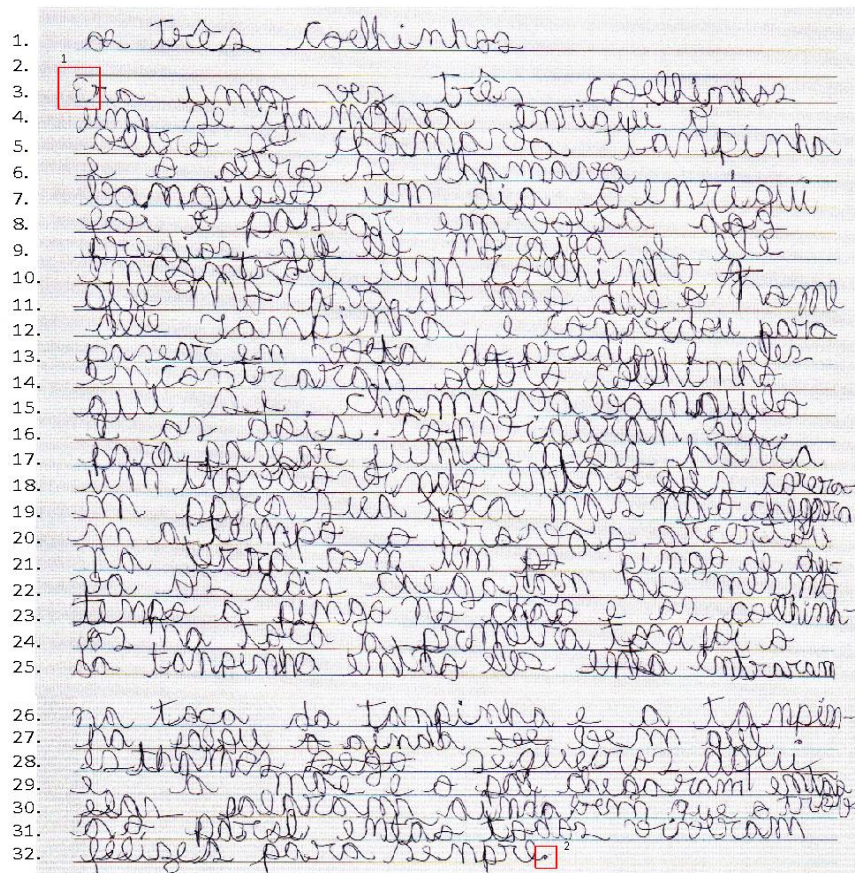 1. os três Coelhinhos
2.
1
3. Era uma vez três coelhinhos
4. um se chamava enriqui o
5. oltro se chamava tampinha
6. e o oltro se chamava
7. banguelo um dia o enriqui
8. foi o pasear em volta dos
9. predios que ele morava e ele
10. encontrou um coelhinho
11. que dele o nome
12. dele Tampinha e convidou para
13. pasear em volta do predio e eles
14. encontraram outro coelhinho
15. qui se chamava banguelo
16. e os dois convidaram ele
17. para pasear juntos mas
18. um vindo entao eles correra
19. m para sua toca mas não chegara
20. m a tempo o acertou
21. na terra com um pingo de
22. os dois chegaram ao mesmo
23. tempo o pingo no chão e os coelhin-
24. os na toca a primeira toca foi o
25. da tampinha entao eles entraram
26. na toca da tampinha e a tampin-
27. ha falou o ainda bem que
28. estamos aqui
29. e a mãe e o pai chegaram entao
30. eles falaram ainda bem que o
31. parol entao todos viveram
32. felizes para sempre.
2